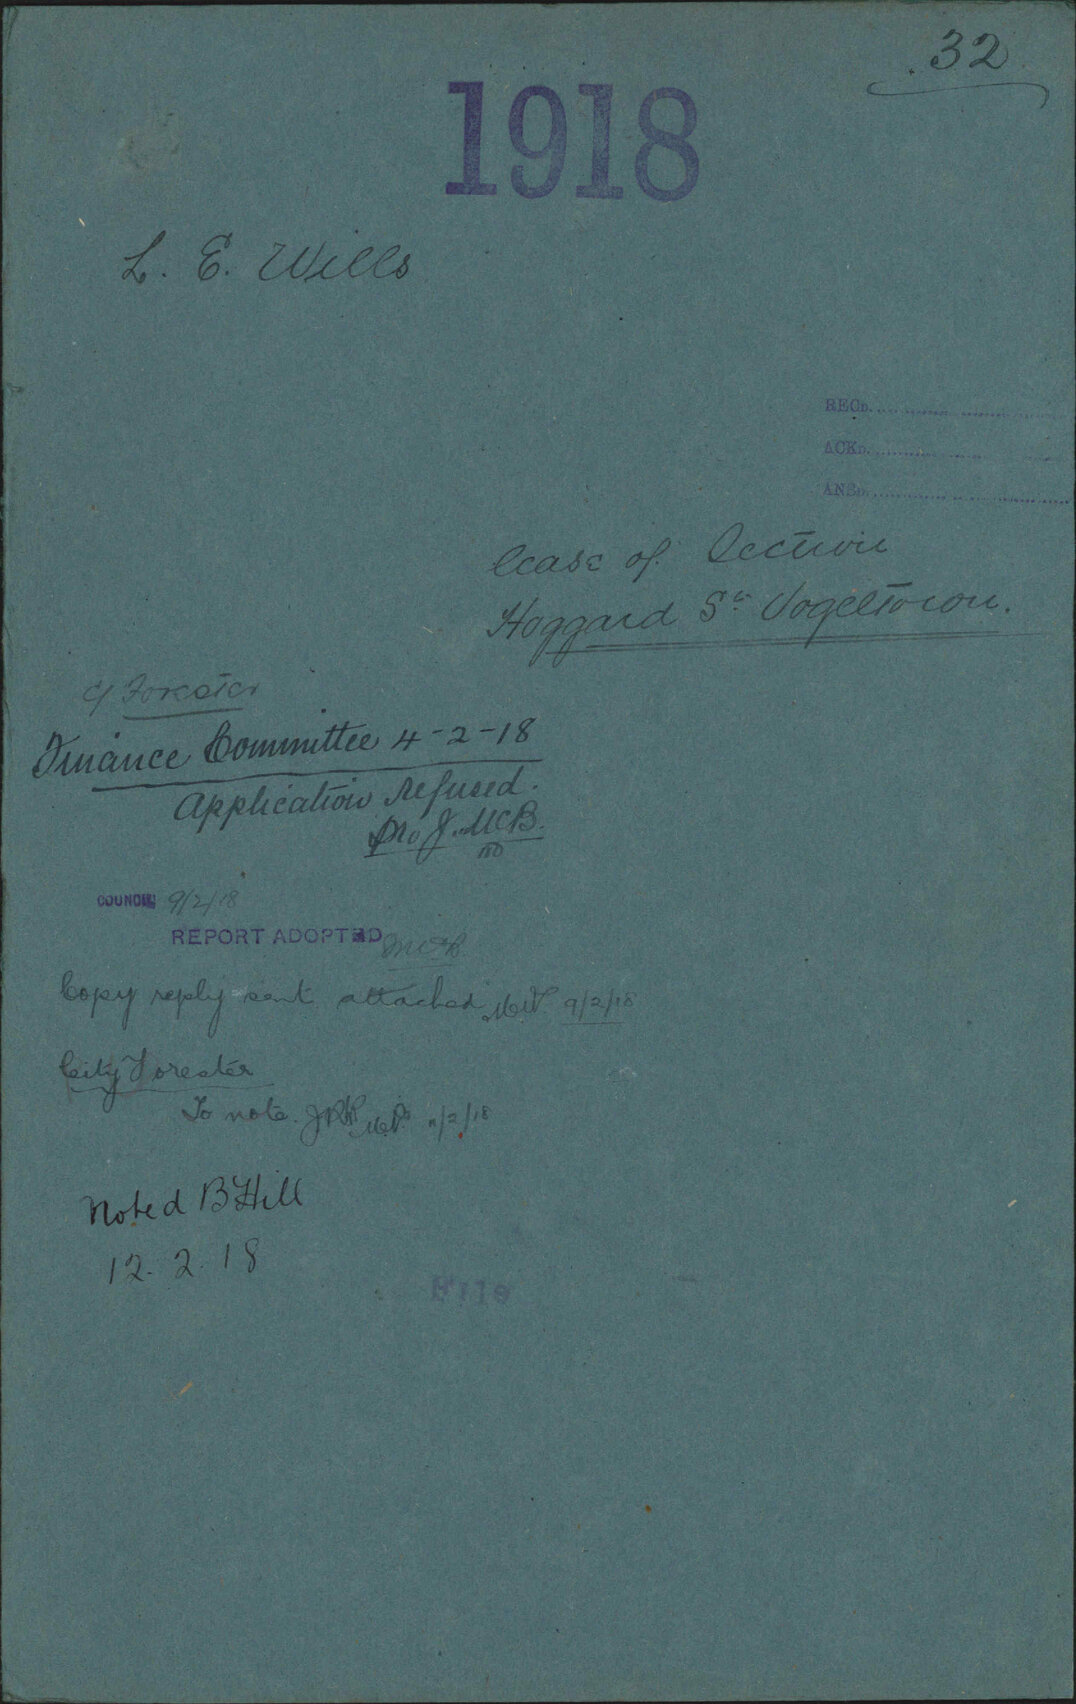 32
1918
L. E. Wills
RECD.
ACKD.
ANSD.
Lease of Section
Hoggard St Vogeltown.
C/ Forester
Finance Committee 4-2-18
Application refused.
J. McB.
COUNCIL 9/2/18
REPORT ADOPTED
Copy reply sent attached 9/2/18
City Forester
To note. 11/2/18
Noted B Hill
12. 2. 18
File